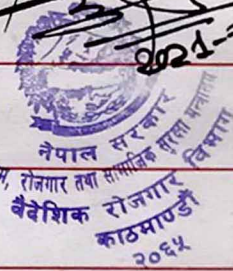 2021-
नेपाल सरकार
रोजगार तथा सामाजिक सुरक्षा मन्त्रालय
वैदेशिक रोजगार विभाग
काठमाण्डौं
२०६५